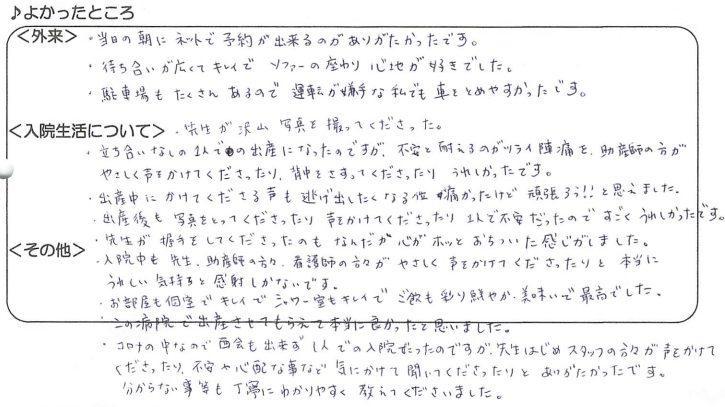 ♪よかったところ
<外来>・当日の朝にネットで予約が出来るのがありがたかったです。
・待ち合いが広くてキレイでソファーの座わり心地が好きでした。
・駐車場もたくさんあるので運転が嫌手な私でも車をとめやすかったです。
<入院生活について>・先生が沢山写真を撮ってくださった。
・立ち合いなしの1人での出産になったのですが、不安と耐えるのがツライ陣痛を、助産師の方が
やさしく声をかけてくださったり、背中をさすってくださったりうれしかったです。
・出産中にかけてくださる声も逃げ出したくなる位痛かったけど頑張ろう!!と思えました。
・出産後も写真をとってくださったり声をかけてくださったり1人で不安だったのですごくうれしかったです。
・先生が握手をしてくださったのもなんだか心がホッとおちついた感じがしました。
<その他>・入院中も先生、助産師の方々、看護師の方々がやさしく声をかけてくださったりと本当に
うれしい気持ちと感謝しかないです。
・お部屋も個室でキレイでシャワー室もキレイでご飯も彩り鮮やか・美味いで最高でした。
・この病院で出産させてもらえて本当に良かったと思いました。
・コロナの中なので面会も出来ず1人での入院だったのですが、先生はじめスタッフの方々が声をかけて
くださったり、不安や心配な事など気にかけて聞いてくださったりとありがたかったです。
分からない事等も丁寧にわかりやすく教えてくださいました。